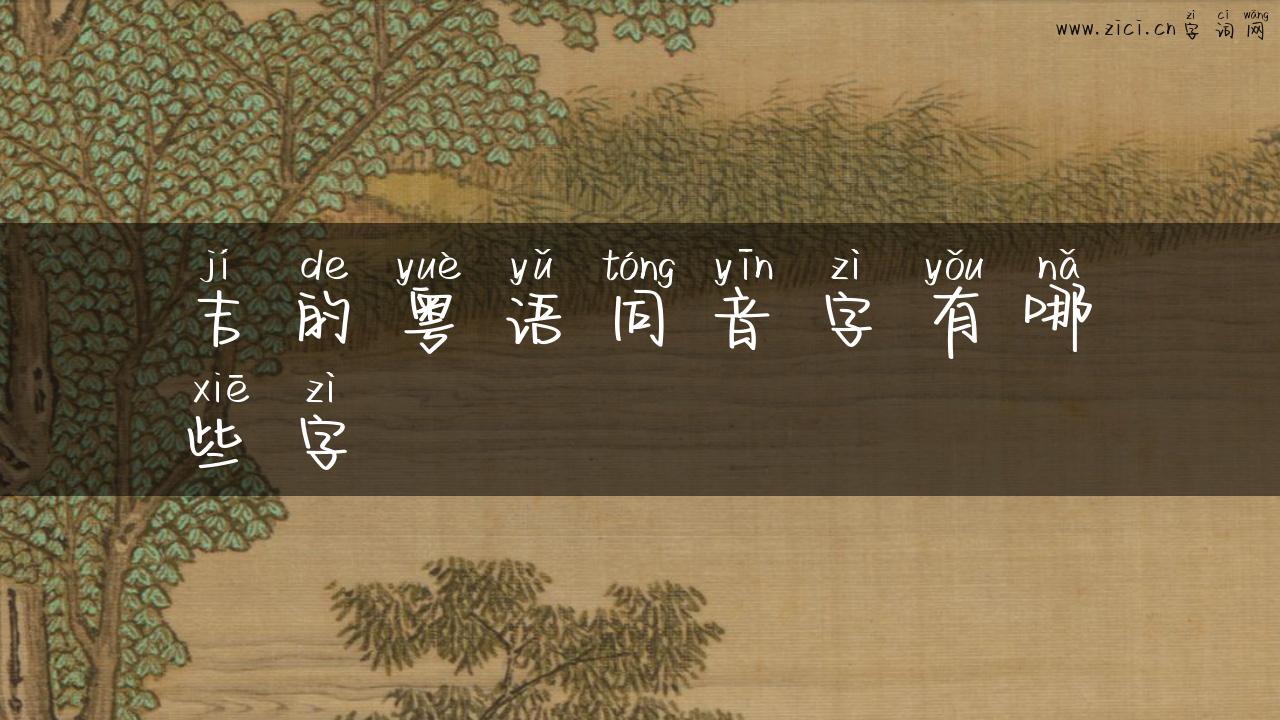 zì cí wǎng
www.zici.cn 字词网
jí de yuè yǔ tóng yīn zì yǒu nǎ
吉的粤语同音字有哪
xiē zì
些字